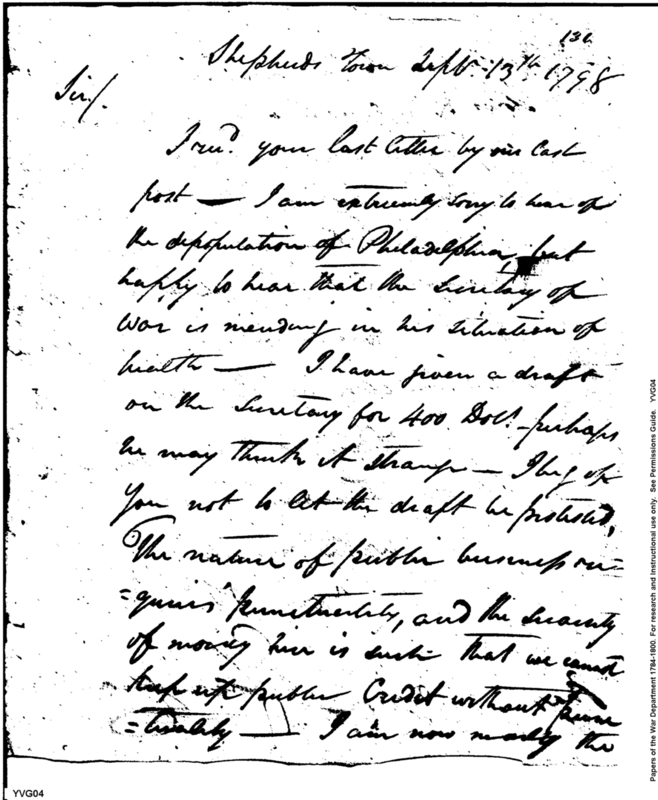 131
Shepherds Town Sept. 13th 1798
Sir/.
I recd. your last letter by our last
post — I am extremely sorry to hear of
the depopulation of Philadelphia, but
happy to hear that the Secretary of
War is mending in his situation of
health — I have given a draft
on the Secretary for 400 Dols. – perhaps
he may think it strange — I beg of
you not to let the draft be protested,
The nature of public business re=
=quires punctuality, and the scarcity
of money here is such that we cannot
keep up public Credit without punc
=tuality — I am now making the
YVG04
Papers of the War Department 1784-1800. For research and Instructional use only. See Permissions Guide. YVG04